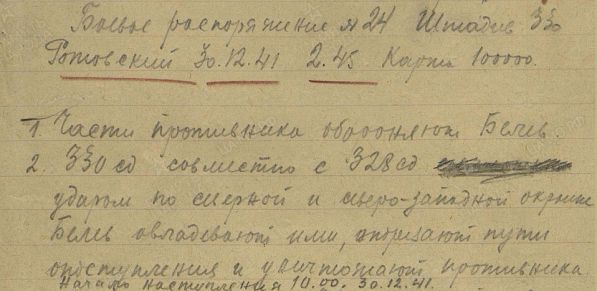 Боевое распоряжение № 24 Штадив 330
Ротовский 30.12.41 2.45 Карта 100000.
1. Части противника обороняют Белев.
2. 330 сд совместно с 328 сд
ударом по северной и северо-западной окраине
Белев овладевают ими, отрезают пути
отступления и уничтожают противника
Начало наступления 10.00. 30.12.41.